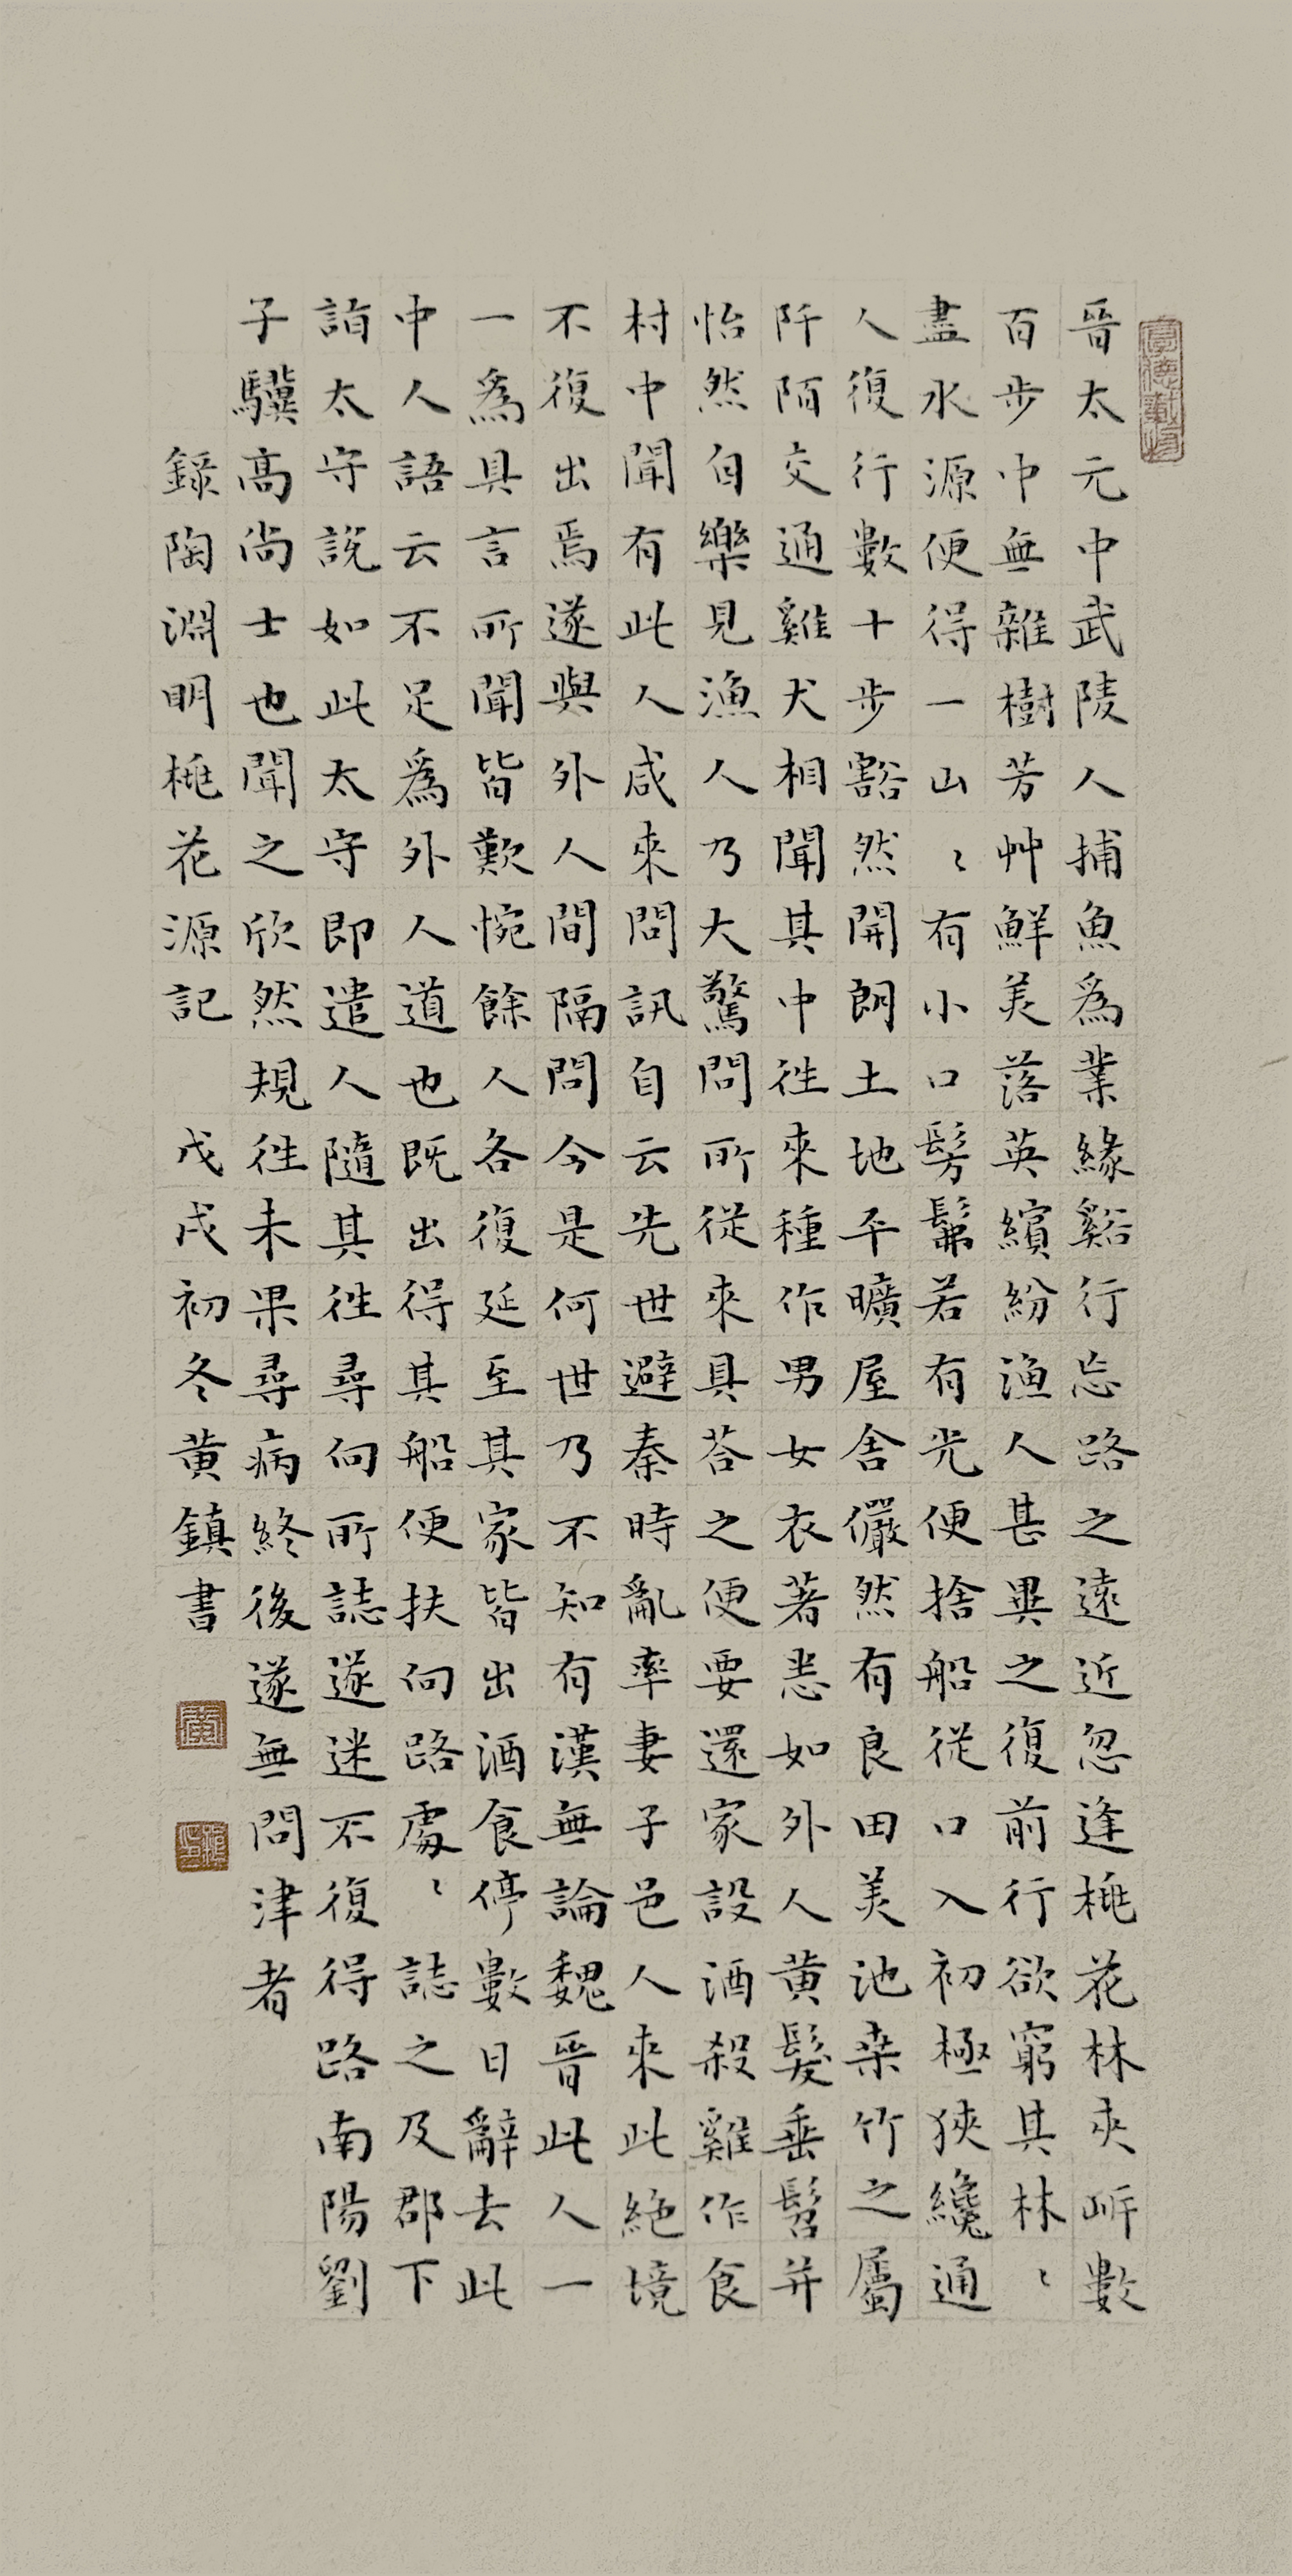 晉太元中武陵人捕魚爲業緣谿行忘路之遠近忽逢桃花林夾岍數
百步中無雜樹芳艸鮮美落英繽紛漁人甚異之復前行欲窮其林〻
盡水源便得一山〻有小口髣髴若有光便捨船從口入初極狹纔通
人復行數十步豁然開朗土地平曠屋舍儼然有良田美池桒竹之屬
阡陌交通雞犬相聞其中徃來種作男女衣著悉如外人黃髮垂髫并
怡然自樂見漁人乃大驚問所從來具荅之便要還家設酒殺雞作食
村中聞有此人咸來問訊自云先世避秦時亂率妻子邑人來此絶境
不復出焉遂與外人間隔問今是何世乃不知有漢無論魏晉此人一
一爲具言所聞皆歎惋餘人各復延至其家皆出酒食停數日辭去此
中人語云不足爲外人道也既出得其船便扶向路處〻誌之及郡下
詣太守說如此太守即遣人隨其徃尋向所誌遂迷不復得路南陽劉
子驥高尚士也聞之欣然規徃未果尋病終後遂無問津者
錄陶淵明桃花源記 戊戌初冬黃鎮書
厚德載物